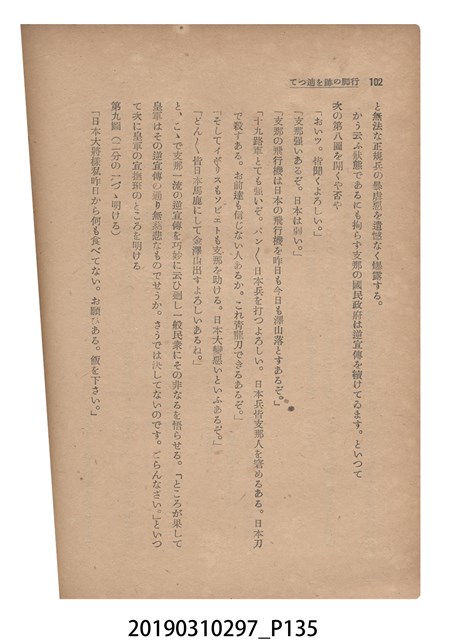 102 行脚の跡を追つて
と無法な正規兵の暴虐惡を遺憾なく爆露する。
かう云ふ狀態であるにも拘らず支那の國民政府は逆宣傳を續けてゐます。といつて
次の第八圖を開くや否や
「おいツ。皆聞くよろしい。」
「支那强いあるぞ。日本は弱い。」
「支那の飛行機は日本の飛行機を昨日も今日も澤山落とすあるぞ。」
「十九路軍とても强いぞ。パン〱日本兵を打つよろしい。日本兵皆支那人を窘めるある。日本刀
で殺すある。お前達も信じない人あるか。これ靑龍刀できるあるぞ。」
「そしてイギリスもソビエトも支那を助ける。日本大變惡いといふあるぞ。」
「どん〱皆日本馬鹿にして金澤山出すよろしいあるね。」
と、こゝで支那一流の逆宣傳を巧妙に云ひ廻し一般民衆にその非なるを悟らせる。「ところが果して
皇軍はその逆宣傳の通り無慈悲なものでせうか。さうでは決してないのです。ごらんなさい。」といつ
て次に皇軍の宣撫班のところを明ける
第九圖(二分の一づゝ明ける)
「日本大將樣私昨日から何も食べてない。お願ひある。飯を下さい。」
20190310297_P135